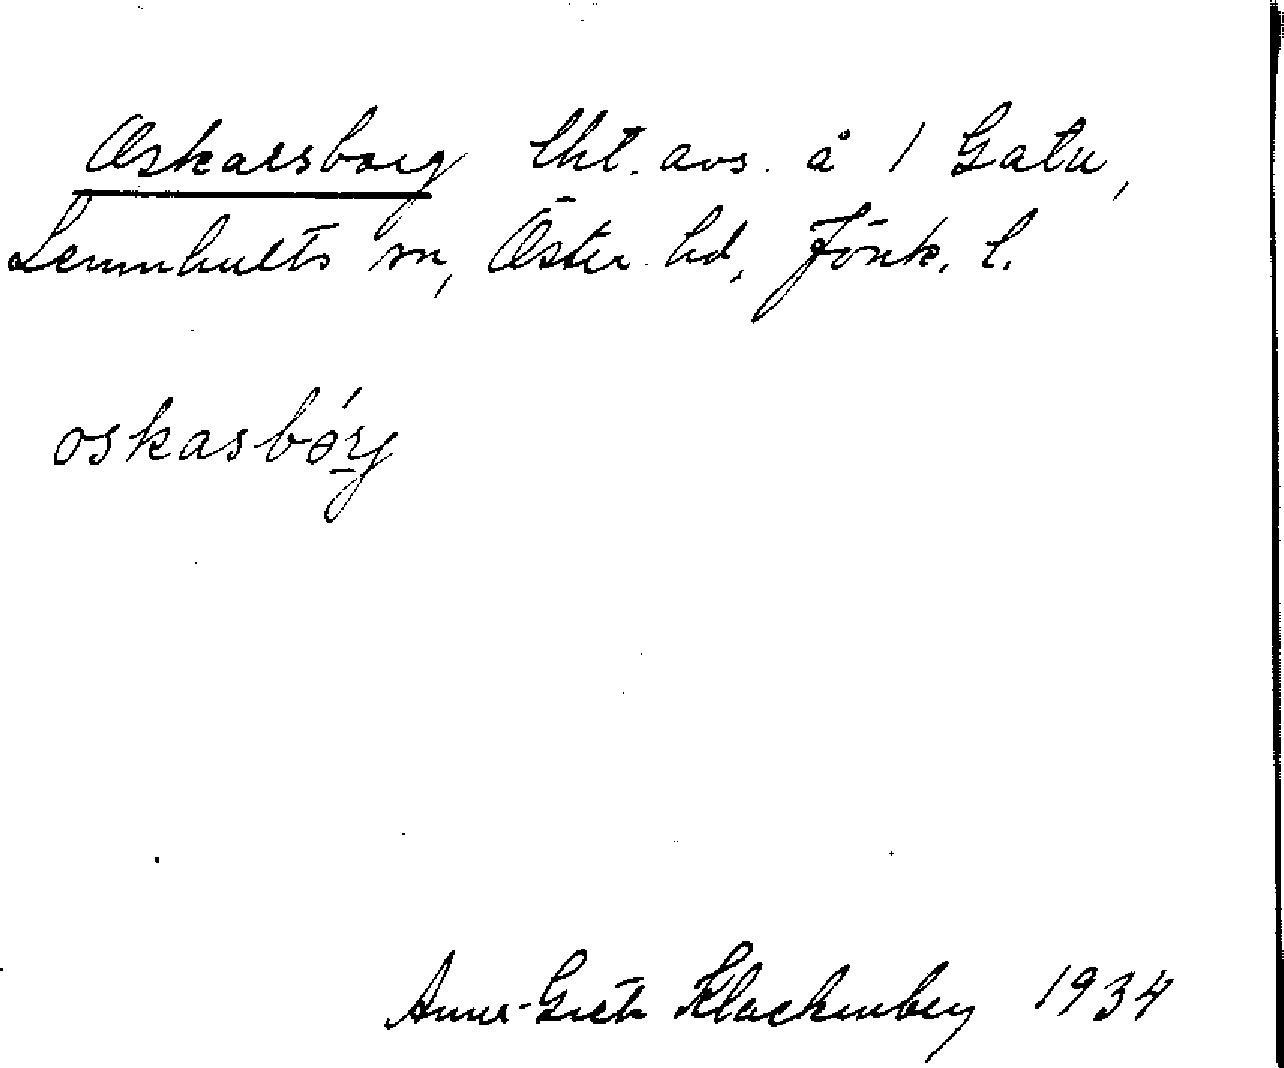 Oskarsborg lht. avs. å 1 Gata,
Lemnhults sn, Östra hd, Jönk. l.
oskasbórg
Anna-Greta Klackenberg 1934